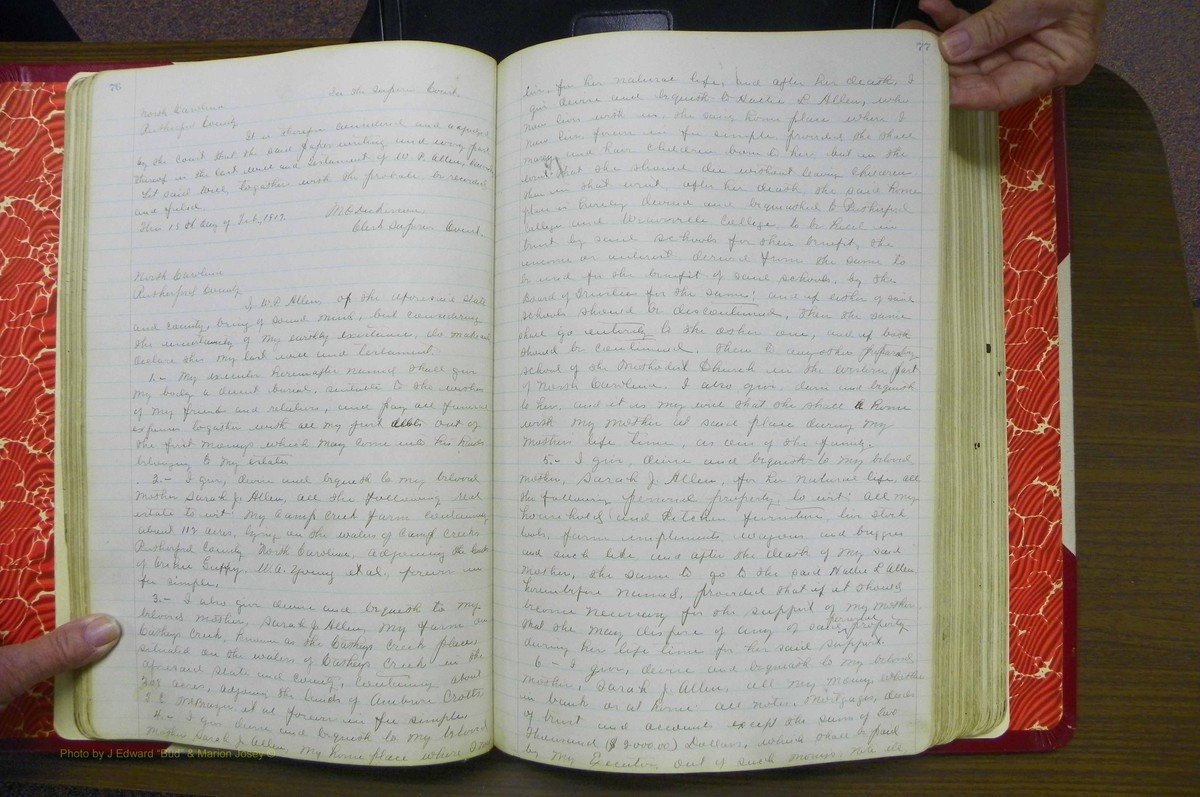 76
In the Superior Court
North Carolina
Rutherford County
It is therefore considered and adjudged
by the Court that the said paper writing and every part
thereof is the last will and testament of W. P. Allen,
Let said will, together with the probate, be recorded
and filed.
This 11th day of Feb, 1919.
Clerk Superior Court.
North Carolina
Rutherford County
I W.P. Allen of the aforesaid State
and county, being of sound mind, but considering
the uncertainty of my earthly existence, do make and
declare this my last will and testament.
1.- My executor hereinafter named shall give
my body a decent burial, suitable to the wishes
of my friends and relatives, and pay all funeral
expenses together with all my just debts out of
the first moneys which may come into his hands
belonging to my estate.
2.- I give, devise and bequeath to my beloved
mother Sarah J. Allen, all the following real
estate to wit: My Camp Creek farm containing
about 112 acres, lying on the waters of Camp Creek
Rutherford County North Carolina, adjoining the lands
of Guffy, W.A. Young et al, forever in
fee simple.
3.- I also give devise and bequeath to my
beloved mother, Sarah J. Allen, my farm on
Catheys Creek, known as the Catheys Creek place,
situated on the waters of Catheys Creek in the
aforesaid state and county, containing about
acres, adjoining the lands of Ambrose
et al forever in fee simple.
4.- I give devise and bequeath to my beloved
mother Sarah J. Allen, my home place where I now
Photo by J Edward "Bud" & Marion Josey ©
77
live, for her natural life, and after her death, I
give devise and bequeath to Hattie L Allen, who
now lives with us, the said home place where I
now live forever in fee simple, provided she shall
marry and have children born to her, but in the
event that she should die without leaving children
then in that event after her death, the said home
place is hereby devised and bequeathed to Rutherford
College and Weaverville College, to be held in
trust by said schools for their benefit, the
income or interest derived from the same to
be used for the benefit of said schools, by the
Board of Trustees for the same; and if either of said
schools should be discontinued, then the same
shall go entirely to the other one, and if both
should be continued, then to any other preparatory
school of the Methodist Church in the Western part
of North Carolina. I also give, devise and bequeath
to her, and it is my will that she shall a home
with my mother at said place during my
mothers life time, as one of the family.
5.- I give, devise and bequeath to my beloved
mother, Sarah J. Allen, for her natural life, all
the following personal property, to wit: all my
household and kitchen furniture, live stock
tools, farm implements, wagons, and buggies
and such like and after the death of my said
mother, the same to go to the said Hattie L Allen
heretofore named, provided that if it should
become necessary for the support of my mother
that she may dispose of any of said personal property
during her life time for her said support.
6.- I give, devise and bequeath to my beloved
mother, Sarah J. Allen, all my money, whether
in bank or at home: all notes, mortgages, deeds
of trust and account except the sum of Two
Thousand ($2000.00) Dollars, which shall be paid
by my Executor out of such moneys, note and